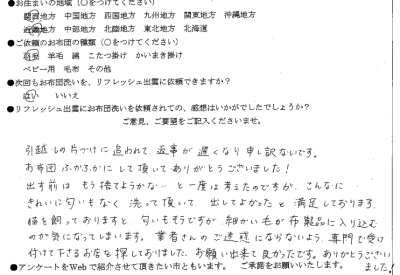 ●お住まいの地域（○をつけてください）
関西地方 中国地方 四国地方 九州地方 関東地方 沖縄地方
近畿地方 中部地方 北陸地方 東北地方 北海道
●ご依頼のお布団の種類（○をつけてください）
羽毛 羊毛 綿 こたつ掛け かいまき掛け
ベビー用 毛布 その他
●次回もお布団洗いを、リフレッシュ出雲に依頼できますか？
はい いいえ
●リフレッシュ出雲にお布団洗いを依頼されての、感想はいかがでしたでしょうか？
ご意見、ご要望をご記入くださいませ。
引越しの片づけに追われて、返事が遅くなり申し訳ないです。
お布団ふかふかにして頂いてありがとうございました！
出す前は もう捨てようかな… と一度は考えたのですが、こんなに
きれいに匂いもなく 洗って頂いて、出してよかった と 満足しております。
猫を飼っておりますと、匂いもそうですが、細かい毛が布製品に入り込む
のが気になってしまいます。業者さんのご迷惑にならないよう、専門で受け
付けて下さるお店を探しておりました。お願い出来て良かったです。ありがとうござい
ました！
●アンケートをWebで紹介させて頂きたい市ともいます。 ご承諾をお願いいたします。